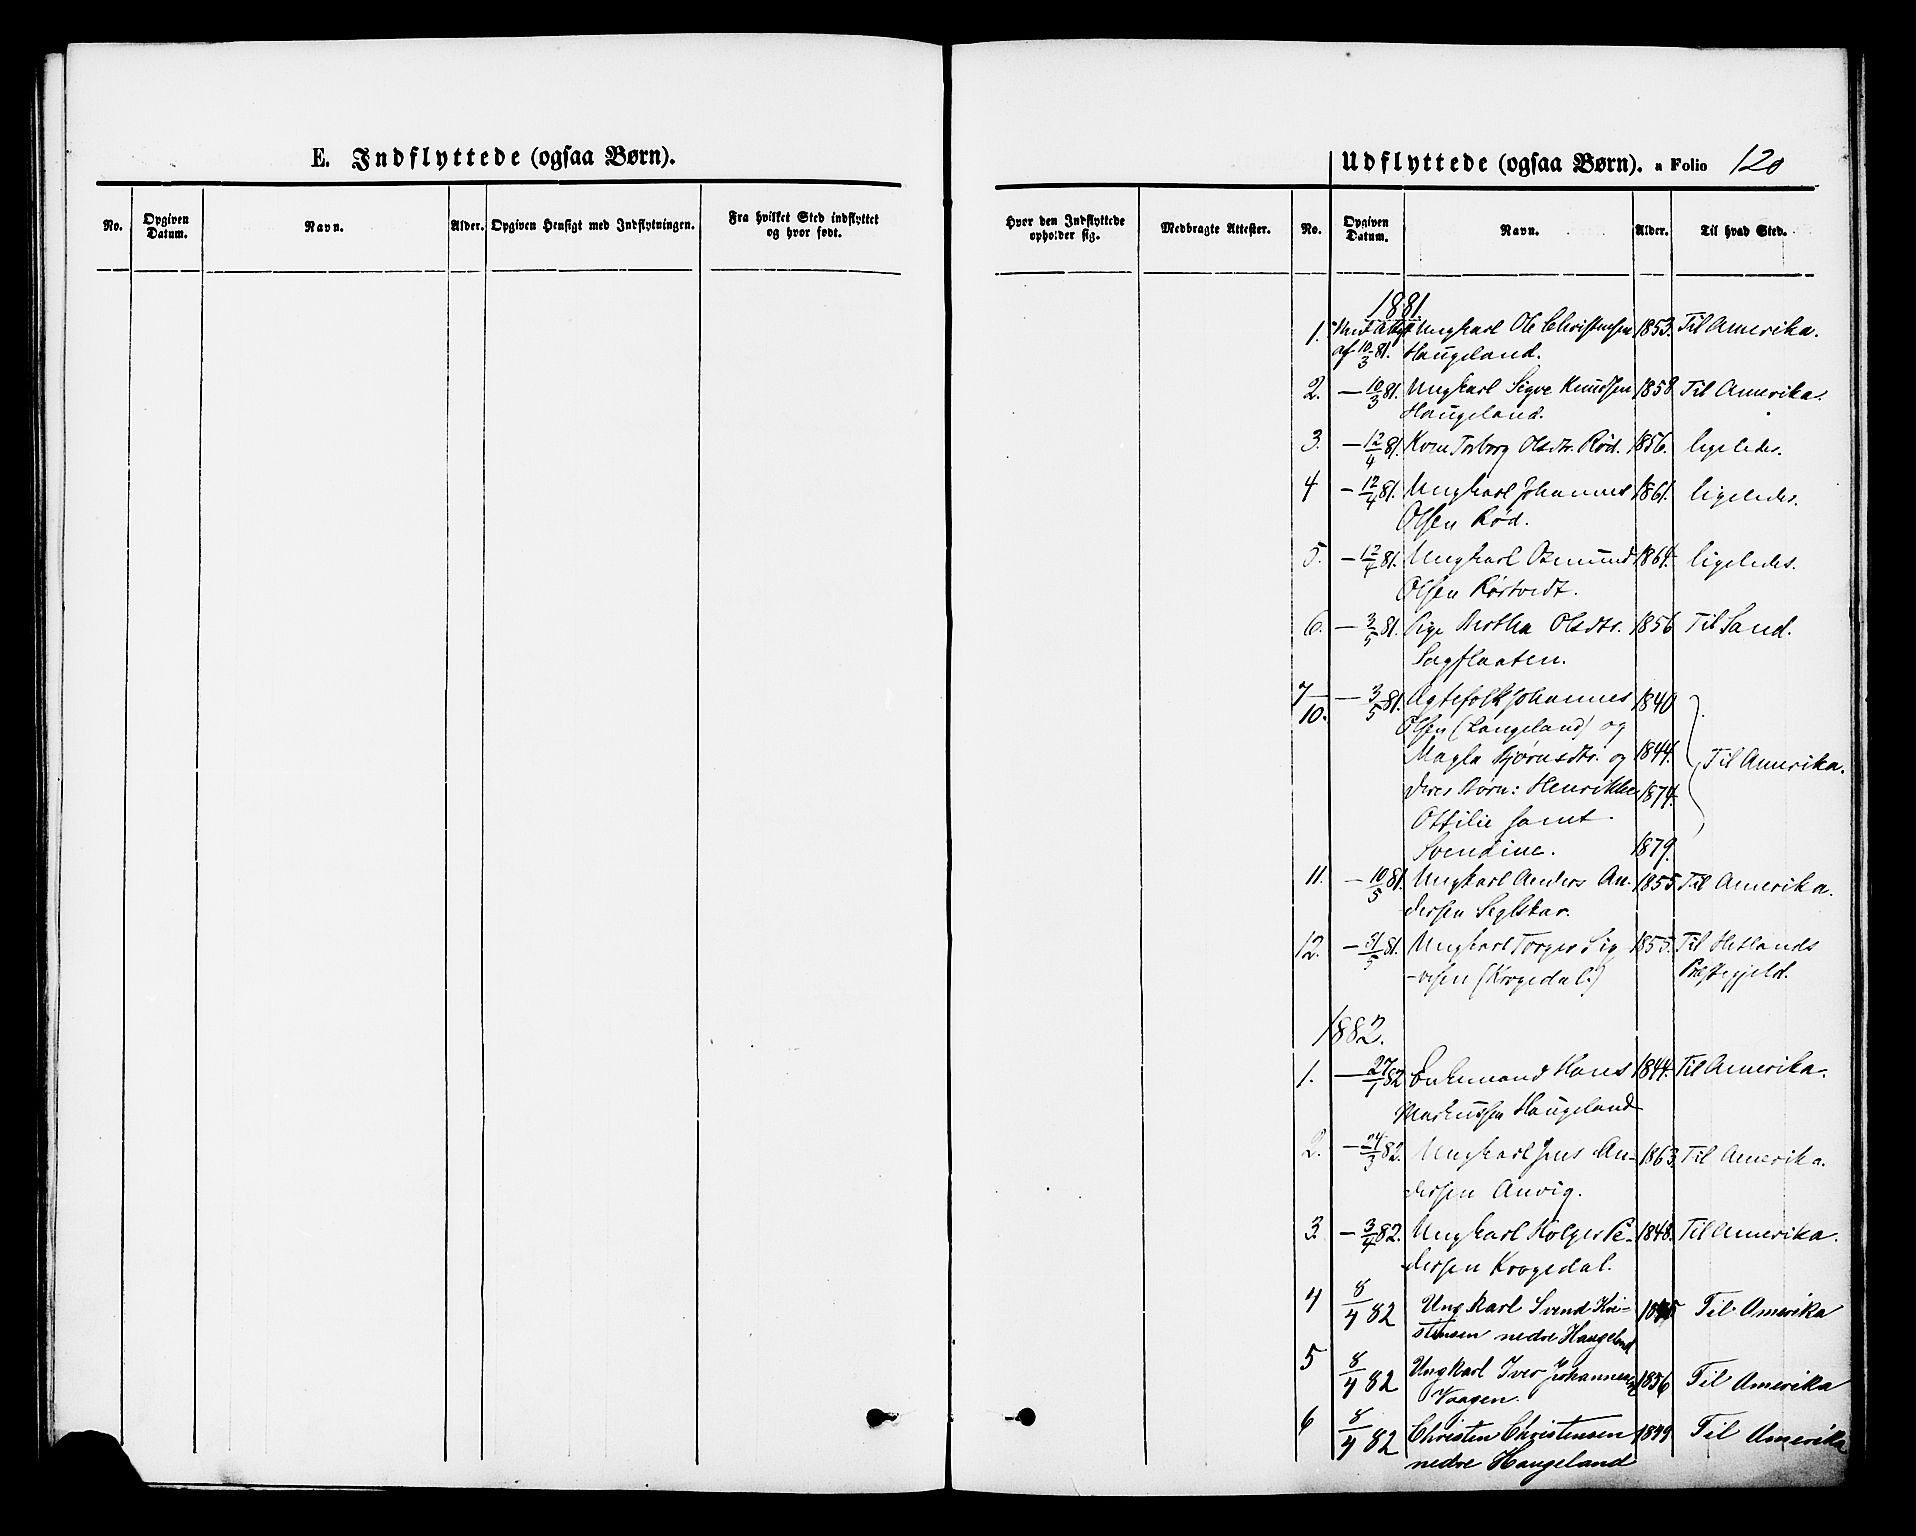 E. Indflyttede (ogsaa Børn).
No. Opgiven Datum. Navn. Alder. Opgiven Hensigt med Indflytningen. Fra hvilket Sted indflyttet og hvor født.
Udflyttede (ogsaa Børn). a Folio 120
Hvor den Indflyttede opholder sig. Medbragte Attester. No. Opgiven Datum. Navn. Alder. Til hvad Sted.
1881.
1. Ungkarl Ole Christensen 1853. Til Amerika.
af 10/3 81. Haugeland.
2. — 10/3 81. Ungkarl Sigve Knudsen 1858 Til Amerika.
Haugeland.
3. — 12/4 81. Kone Torborg Olsdtr. Rød. 1856. ligeledes.
4 — 12/4 81. Ungkarl Johannes 1861. ligeledes.
Olsen Rød.
5. — 12/4 81. Ungkarl Osmund 1864. ligeledes.
Olsen Røstvedt.
6. — 3/5 81. Pige Martha Olsdtr. 1856 Til Sand.
Sagflaaten.
7/10. — 3/5 81. Ægtefolk Johannes 1840
Olsen (Langeland) og
Magla Bjørnsdtr. og 1844. Til Amerika.
deres Børn: Henrikke 1874.
Ottilie samt
Svendine. 1879.
11. — 10/5 81. Ungkarl Anders An- 1855. Til Amerika.
dersen Seglskar.
12. — 31/5 81. Ungkarl Torger Sig- 1855. Til Hetlands
-vesen (Krogedal.) Præstegjeld.
1882.
1. — 27/1 82 Enkemand Hans 1844. Til Amerika.
Markussen Haugeland
2. — 24/3 82. Ungkarl Jens An- 1863. Til Amerika.
dersen Anvig.
3. — 3/4 82. Ungkarl Holger Pe- 1848. Til Amerika.
dersen Krogedal.
4 8/4 82 Ungkarl Svend Kri- Til Amerika
stensen nedre Haugeland
5 8/4 82 Ungkarl Iver Johannesen 1856 Til Amerika
Vaagen.
6 8/4 82 Christen Christensen 1849 Til Amerika
nedre Haugeland